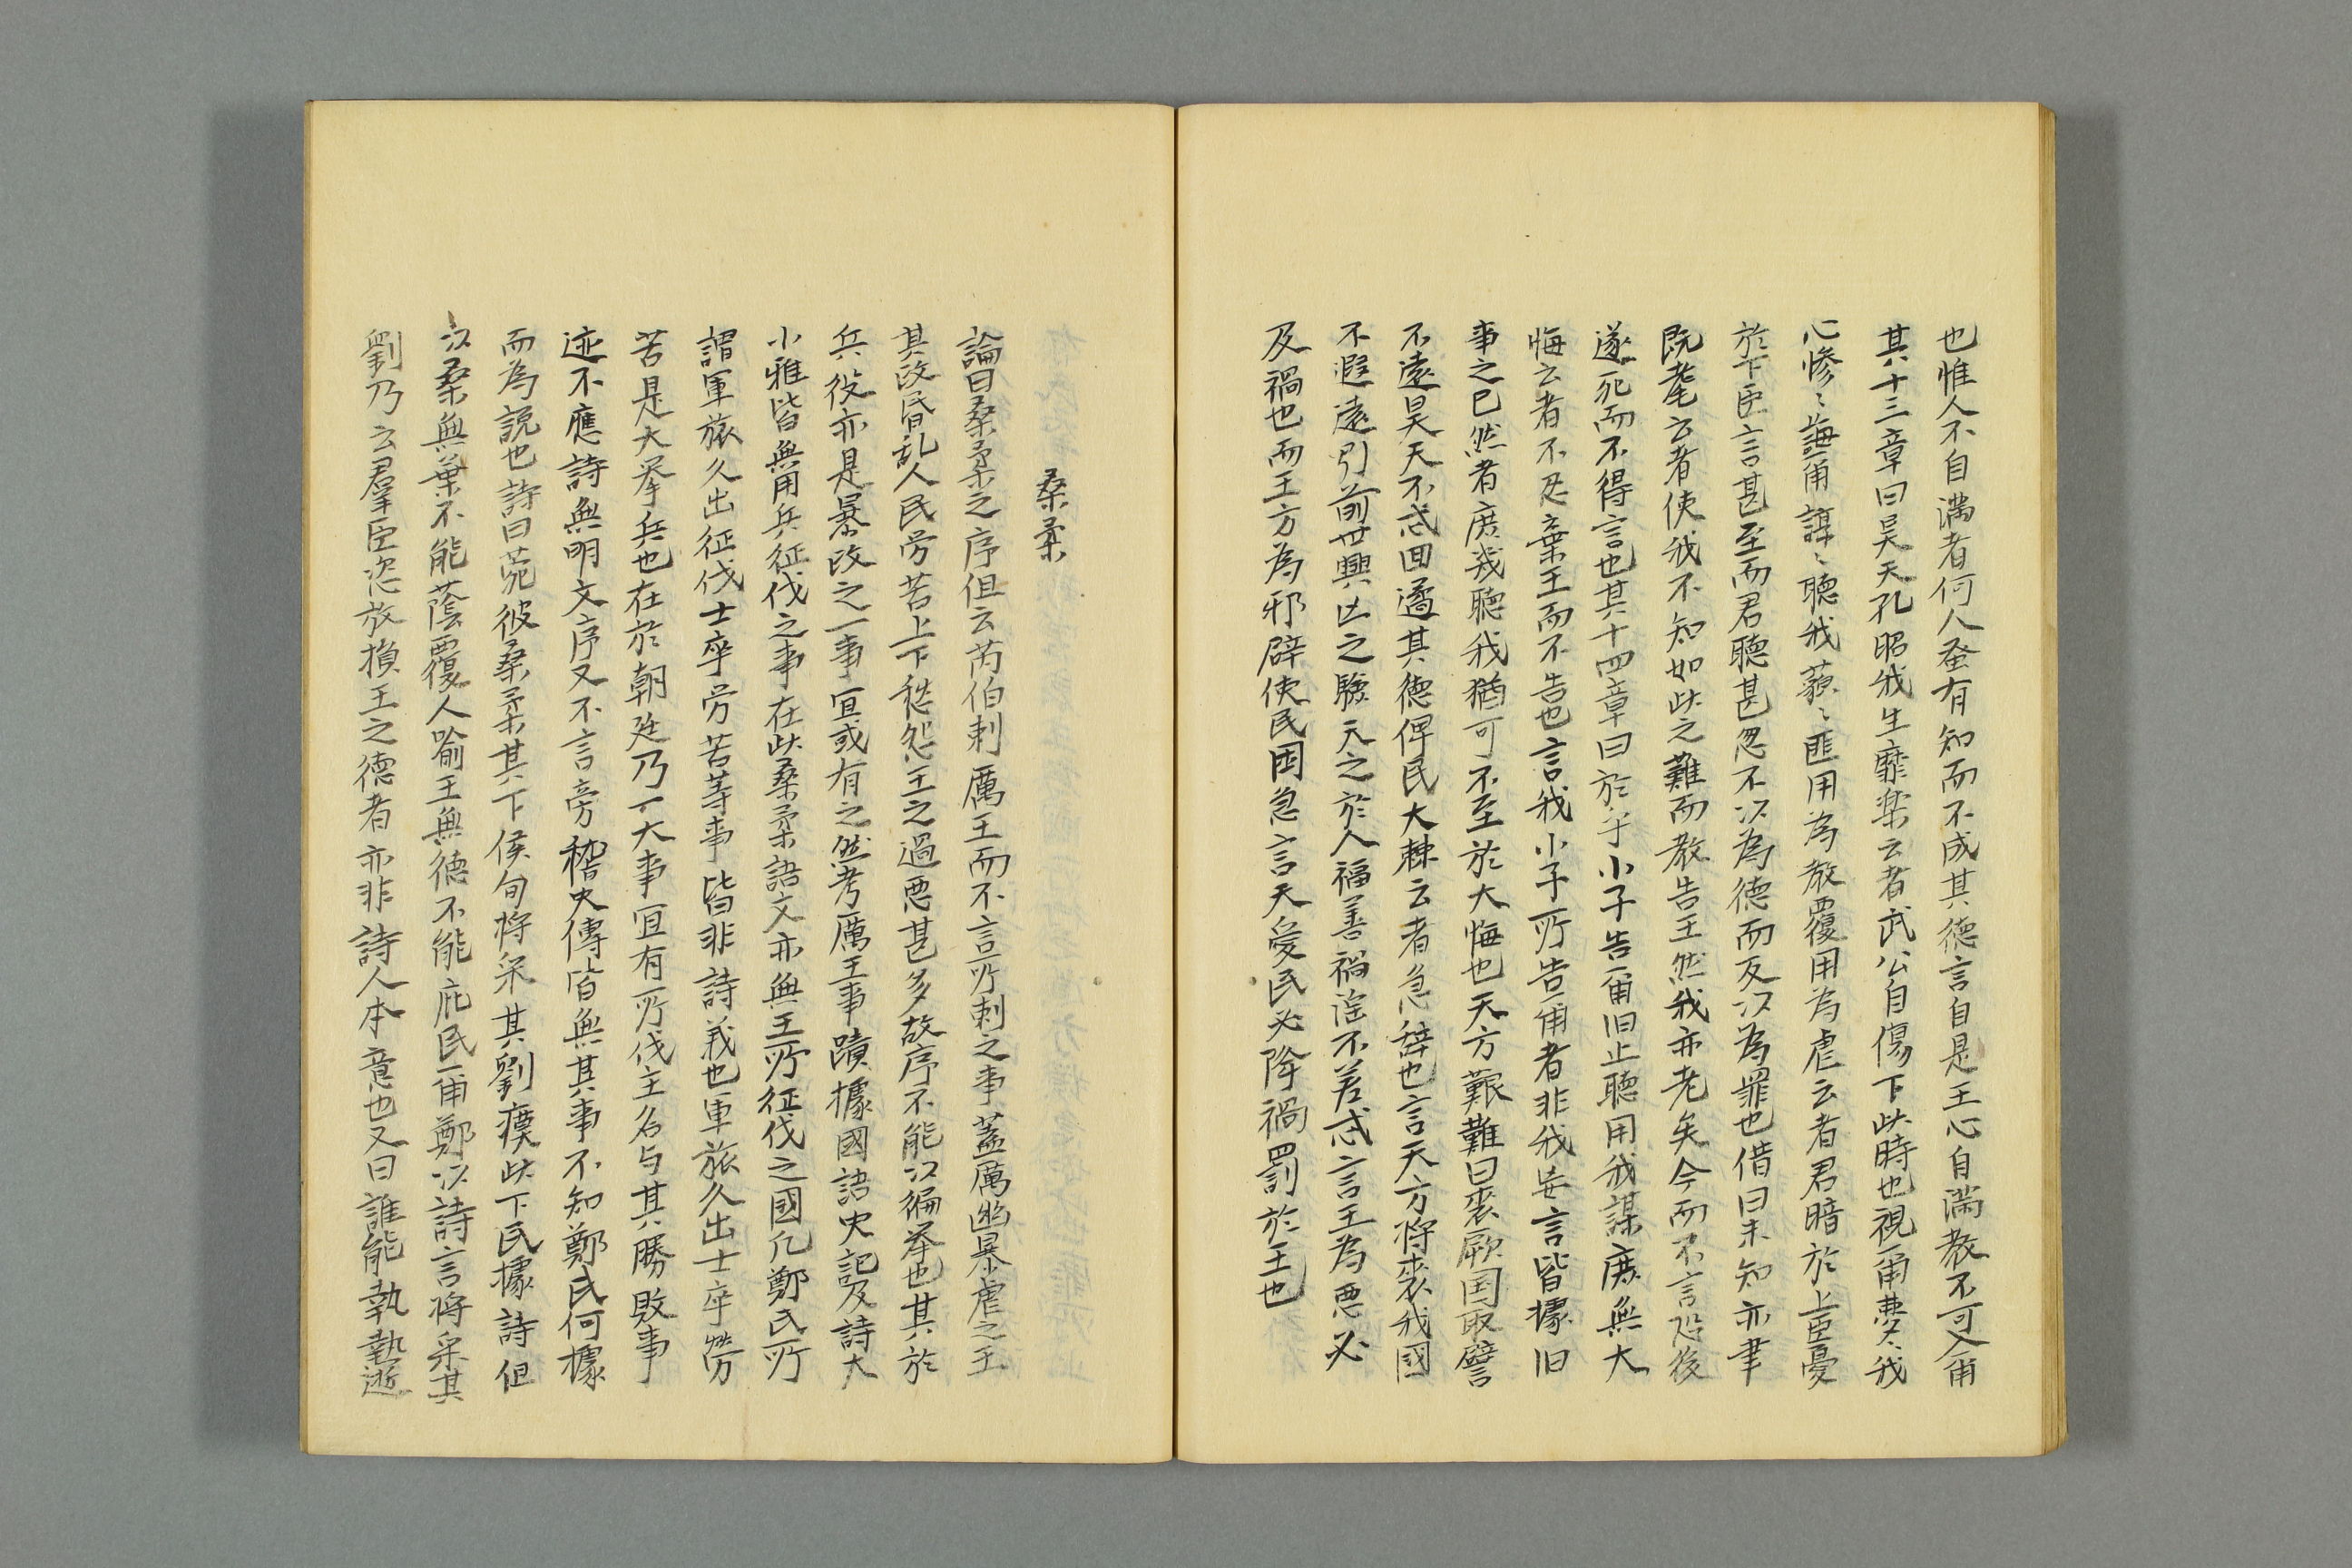 也惟人不自満者何人蚤有知而不成其德言自是王心自満教不可入甬
其十三章曰昊天孔昭我生靡楽云者武公自傷下此時也視甬夢〻我
心惨〻誨甬諄〻聴我藐〻匪用為教覆用為虐云者君暗於上臣憂
於下臣言甚至而君聴甚忽不以為德而反以為罪也借曰未知亦聿
既耄云者使我不知如此之難而教告王然我亦老矣今而不言恐後
遂死而不得言也其十四章曰於乎小子告甬旧止聴用我謀庶無大
悔云者不忍棄王而不告也言我小子所告甬者非我妄言皆據旧
事之已然者庶幾聴我猶可不至於大悔也天方艱難曰喪厥国取譬
不遠昊天不忒回遹其德俾民大棘云者急辞也言天方将喪我國
不遐遠引前世興亡之驗天之於人福善禍淫不差忒言王為悪必
及禍也而王方為邪辟使民困急言天愛民必降禍罰於王也
桑柔
論曰桑柔之序但云芮伯刺厲王而不言所刺之事蓋厲幽暴虐之王
其政昏乱人民労苦上下愁怨王之過悪甚多故序不能以徧挙也其於
兵役亦是暴政之一事宜或有之然考厲王事蹟據國語史記及詩大
小雅皆無用兵征伐之事在此桑柔語文亦無王所征伐之國凡鄭氏所
謂軍旅久出征伐士卒労苦等事皆非詩義也軍旅久出士卒勞
苦是大挙兵也在於朝廷乃一大事宜有所伐主名与其勝敗事
迹不應詩無明文序又不言旁稽史傳皆無其事不知鄭氏何據
而為説也詩曰菀彼桑柔其下侯旬将采其劉瘼此下民據詩但
以桑無葉不能蔭覆人喩王無德不能庇民甬鄭以詩言将采其
劉乃云羣臣恣放損王之德者亦非詩人本意也又曰誰能執熱逝